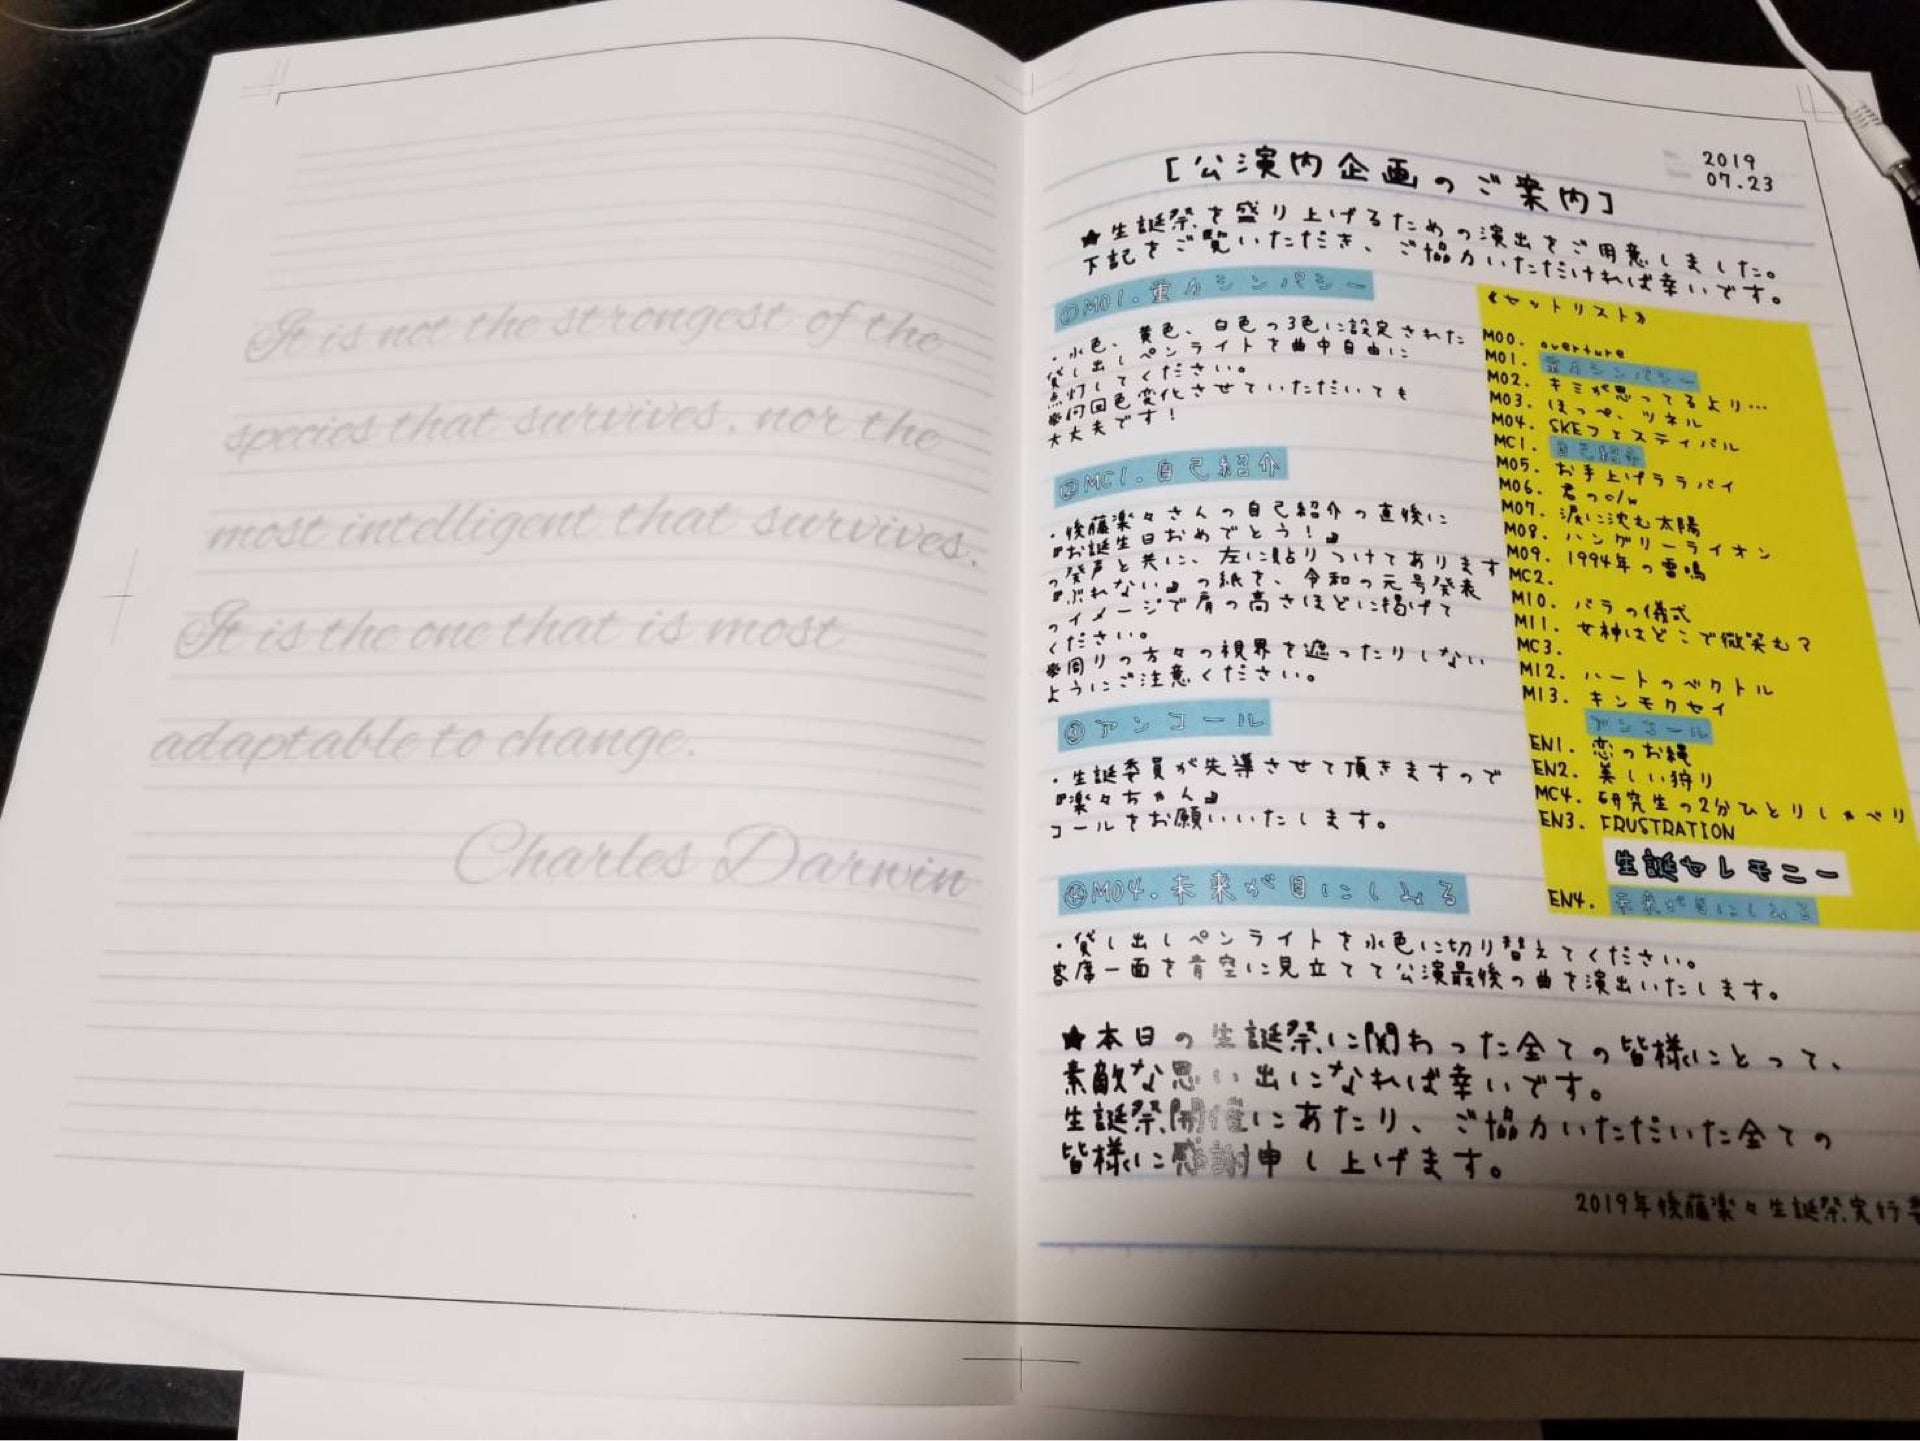 It is not the strongest of the
species that survives, nor the
most intelligent that survives.
It is the one that is most
adaptable to change.
Charles Darwin
2019
07.23
[公演内企画のご案内]
★生誕祭を盛り上げるための演出をご用意しました。
下記をご覧いただき、ご協力いただければ幸いです。
①M01.重力シンパシー
・水色、黄色、白色の3色に設定された
貸し出しペンライトを曲中自由に
点灯してください。
※何回色変化させていただいても
大丈夫です！
②MC1.自己紹介
・後藤楽々さんの自己紹介の直後に
『お誕生日おめでとう！』
の発声と共に、左に貼りつけてあります
『ぶれない』の紙を、令和の元号発表
のイメージで肩の高さほどに掲げて
ください。
※周りの方々の視界を遮ったりしない
ようにご注意ください。
③アンコール
・生誕委員が先導させて頂きますので
『楽々ちゃん』
コールをお願いいたします。
④M04.未来が目にしみる
・貸し出しペンライトを水色に切り替えてください。
客席一面を青空に見立てて公演最後の曲を演出いたします。
《セットリスト》
M00. overture
M01. 重力シンパシー
M02. キミが思ってるより…
M03. ほっぺ、ツネル
M04. SKEフェスティバル
MC1. 自己紹介
M05. お手上げララバイ
M06. 君のc/w
M07. 涙に沈む太陽
M08. ハングリーライオン
M09. 1994年の雷鳴
MC2.
M10. バラの儀式
M11. 女神はどこで微笑む？
MC3.
M12. ハートのベクトル
M13. キンモクセイ
アンコール
EN1. 恋のお縄
EN2. 美しい狩り
MC4. 研究生の2分ひとりしゃべり
EN3. FRUSTRATION
生誕セレモニー
EN4. 未来が目にしみる
★本日の生誕祭に関わった全ての皆様にとって、
素敵な思い出になれば幸いです。
生誕祭開催にあたり、ご協力いただいた全ての
皆様に感謝申し上げます。
2019年後藤楽々生誕祭実行委